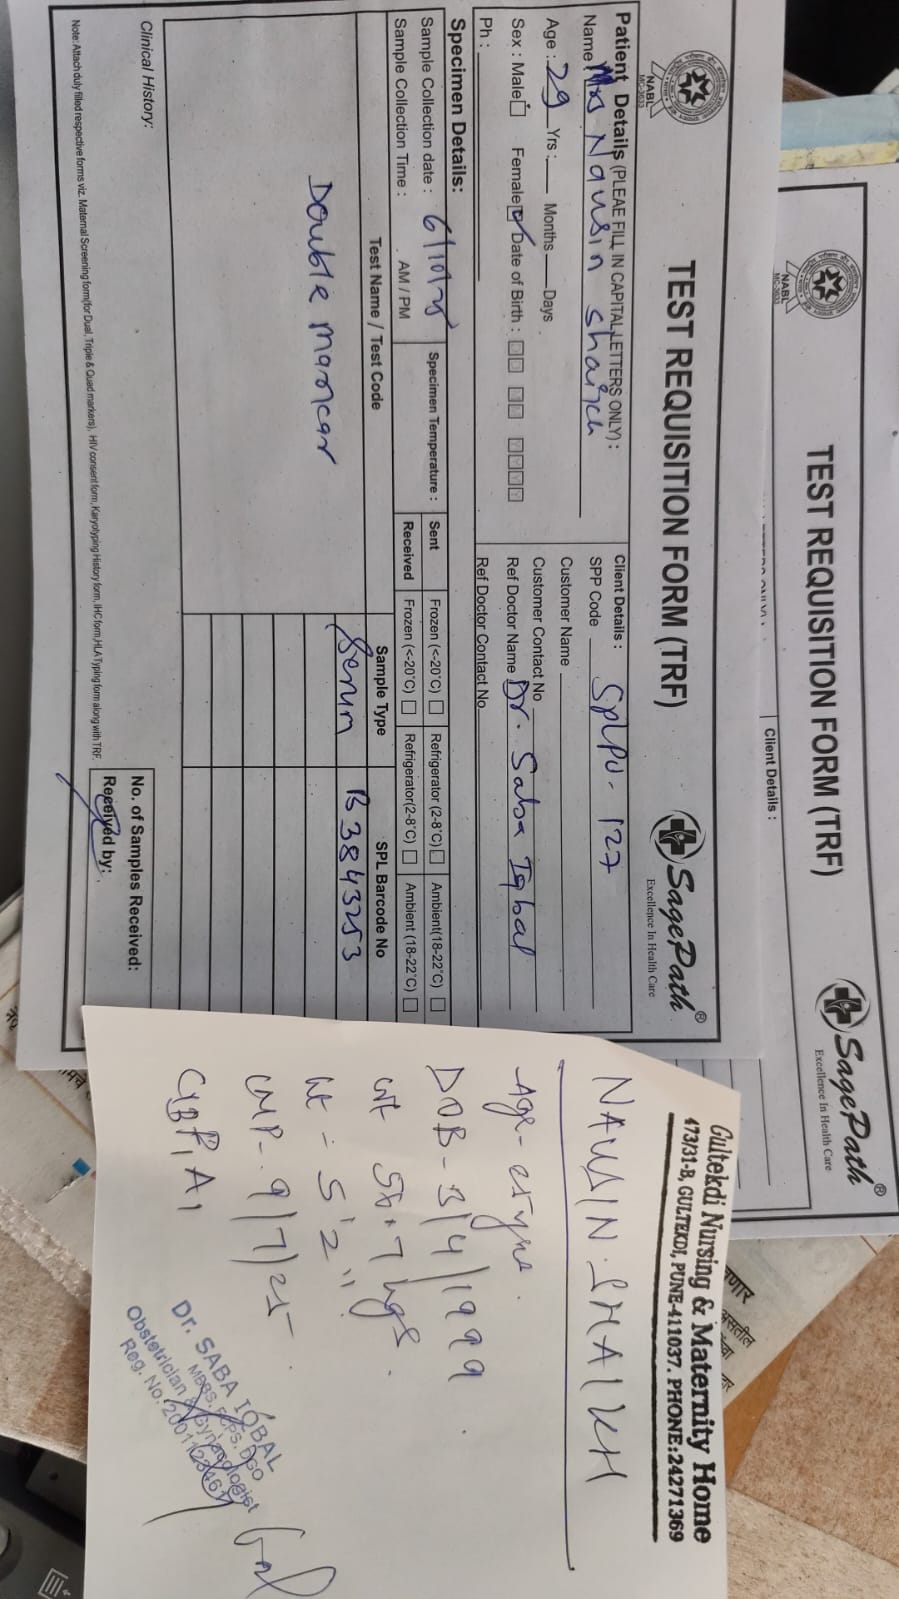 NABL
TEST REQUISITION FORM (TRF)
SagePath®
Excellence In Health Care
Client Details :
NABL
MC-3633
TEST REQUISITION FORM (TRF)
SagePath®
Excellence In Health Care
Patient Details (PLEAE FILL IN CAPITAL LETTERS ONLY) :
Name Mrs Nausin Shaikh
Age : 29 Yrs : Months Days
Sex : Male Female Date of Birth :
Ph :
Client Details :
SPP Code SPLPU- 127
Customer Name
Customer Contact No
Ref Doctor Name Dr. Saba Iqbal
Ref Doctor Contact No
Specimen Details:
Sample Collection date :
Sample Collection Time : AM / PM
Specimen Temperature :
Sent Frozen (<-20°C) Refrigerator (2-8°C) Ambient(18-22°C)
Received Frozen (<-20°C) Refrigerator(2-8°C) Ambient (18-22°C)
Test Name / Test Code Sample Type SPL Barcode No
Double Marker Serum B3843253
Clinical History:
No. of Samples Received:
Received by:
Note: Attach duly filled respective forms viz. Maternal Screening form(for Dual, Triple & Quad markers), HIV consent form, Karyotyping History form, IHC form,HLA Typing form along with TRF.
Gultekdi Nursing & Maternity Home
473/31-B, GULTEKDI, PUNE-411037. PHONE:24271369
NAUSIN SHAIKH
Age-
DOB-3/4/1999
wt 56.7 kgs.
Ht - 5'2"
LMP- 9/7/25
Dr. SABA IQBAL
MBBS, FCPS, DGO
Obstetrician & Gynaecologist
Reg. No.